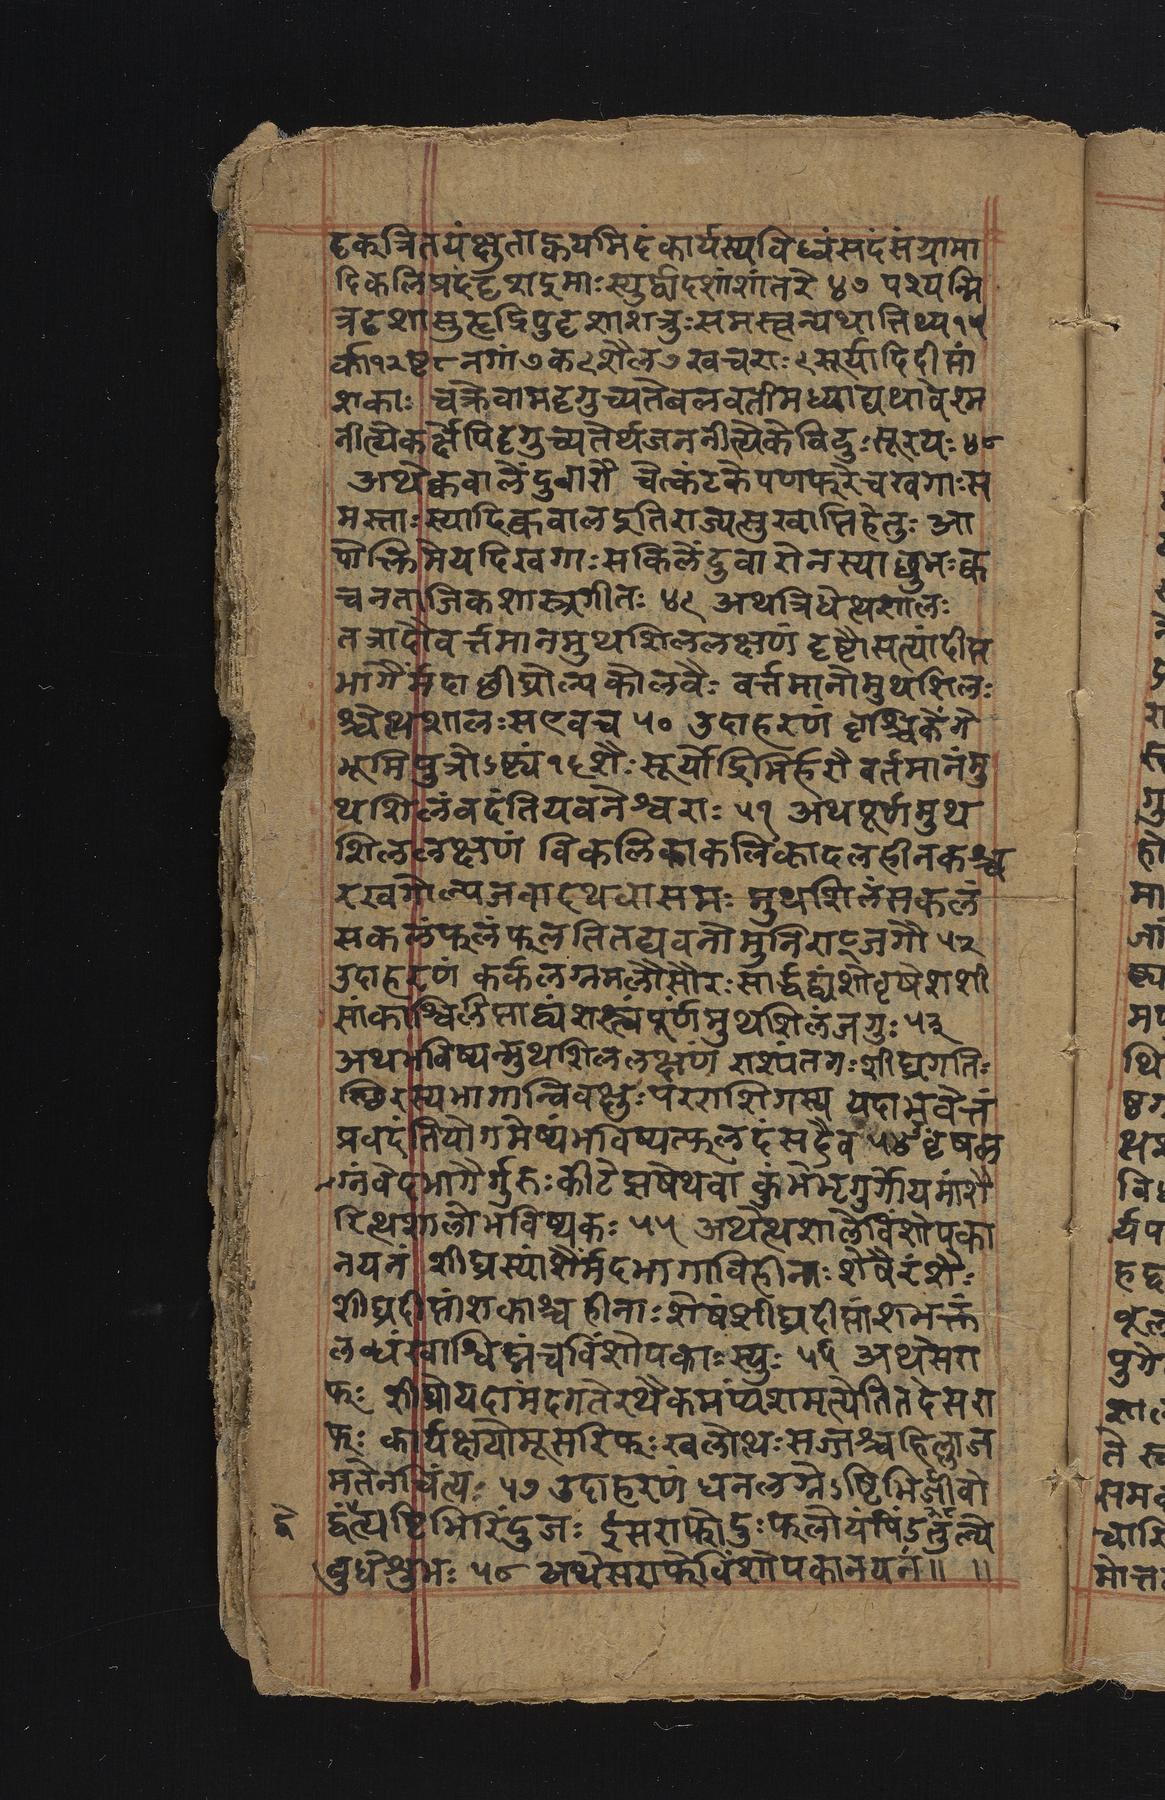 दृक्त्रितयं क्षुताह्वयमिदं कार्यस्य विध्वंसदं संग्रामा
दिकलिप्रदं दृशद्रुमाः स्युर्द्वादशांशांतरे ४७ पश्यन्मि
त्रदृशा सुहृद्रिपुदृशा शत्रुः समस्त्वन्यथा तिथ्य १५
र्का १२ ष्ट ८ नगां ७ क ९ शैल ७ खचराः ९ सूर्यादिदीप्तां
शकाः चक्रे वामदृगुच्यते बलवती मध्याद्यथा वेश्म
नीत्येकर्क्षेपि दृगुच्यतेर्थजननीत्येके विदुः सूरयः ४८
अथेक्कवालेंदुवारौ चेत्कंटके पणफरे च खगाः स
मस्ताः स्यादिक्कवाल इति राज्यसुखाप्तिहेतुः आ
पोक्लिमे यदि खगाः स किलेंदुवारो न स्याछुभः क्व
चन ताजिकशास्त्रगीतः ४९ अथ त्रिधेत्थशालः
तत्रादौ वर्त्तमानमुथशिललक्षणं दृष्टौ सत्यां दीप्त
भागैर्मंदाछीघ्रोल्पको लवैः वर्त्तमानो मुथशिलः
श्चेत्थशालः स एव च ५० उदाहरणं वृश्चिकेंगे
भूमिपुत्रोऽष्ट्यं १६ शैः सूर्योद्रिभिर्हरौ वर्तमानं मु
थशिलं वदंति यवनेश्वराः ५१ अथ पूर्णमुथ
शिललक्षणं विकलिकाकलिकादलहीनकश्च
रखगोल्पजवादथवा समः मुथशिलं सकलं
सकलं फलं फलति तद्यवनो मुनिराट् जगौ ५२
उदाहरणं कर्कलग्नमलौ सौरः सार्द्धद्व्यंशो वृषे शशी
सांकाश्विलिप्ताद्व्यंशस्त्वं पूर्णमुथशिलं जगुः ५३
अथ भविष्यन्मुथशिललक्षणं राश्यंतगः शीघ्रगतिः
स्थिरस्य भागान्विवक्षुः परराशिगस्य यदा भवेत्तं
प्रवदंति योगमेष्यं भविष्यत्फलदं सदैव ५४ वृषल
ग्नं वेदभागैर्गुरुः कीटे झषेथवा कुंभे भृगुर्गोयमांशै
रित्थशालो भविष्यकः ५५ अथेत्थशाले विंशोपका
नयनं शीघ्रस्यांशैर्मंदभागा विहीनाः शेषैरंशैः
शीघ्रदीप्तांशकाश्च हीनाः शेषं शीघ्रदीप्तांशभक्तं
लब्धं खाश्विघ्नं च विंशोपकाः स्युः ५६ अथेसरा
फः शीघ्रो यदा मंदगतेरथैकमप्यंशमत्येति तदेसरा
फः कार्यक्षयो मूसरिफः खलोत्थः सज्जश्च हिल्लाज
मतेन चिंत्यः ५७ उदाहरणं धनलग्नेऽष्टिभिर्जीवो
द्वंत्येष्टिभिरिंदुजः ईसराफो दुःफलोयं षिंऽर्तुल्ये
बुधे शुभः ५८ अथेसराफे विंशोपकानयनं॥ ॥